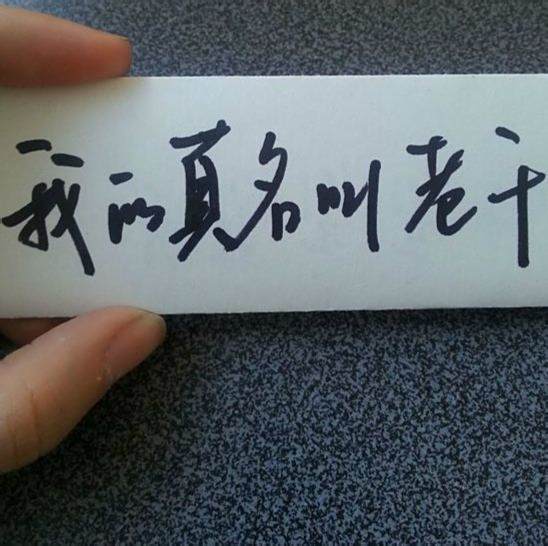 我的真名叫老千